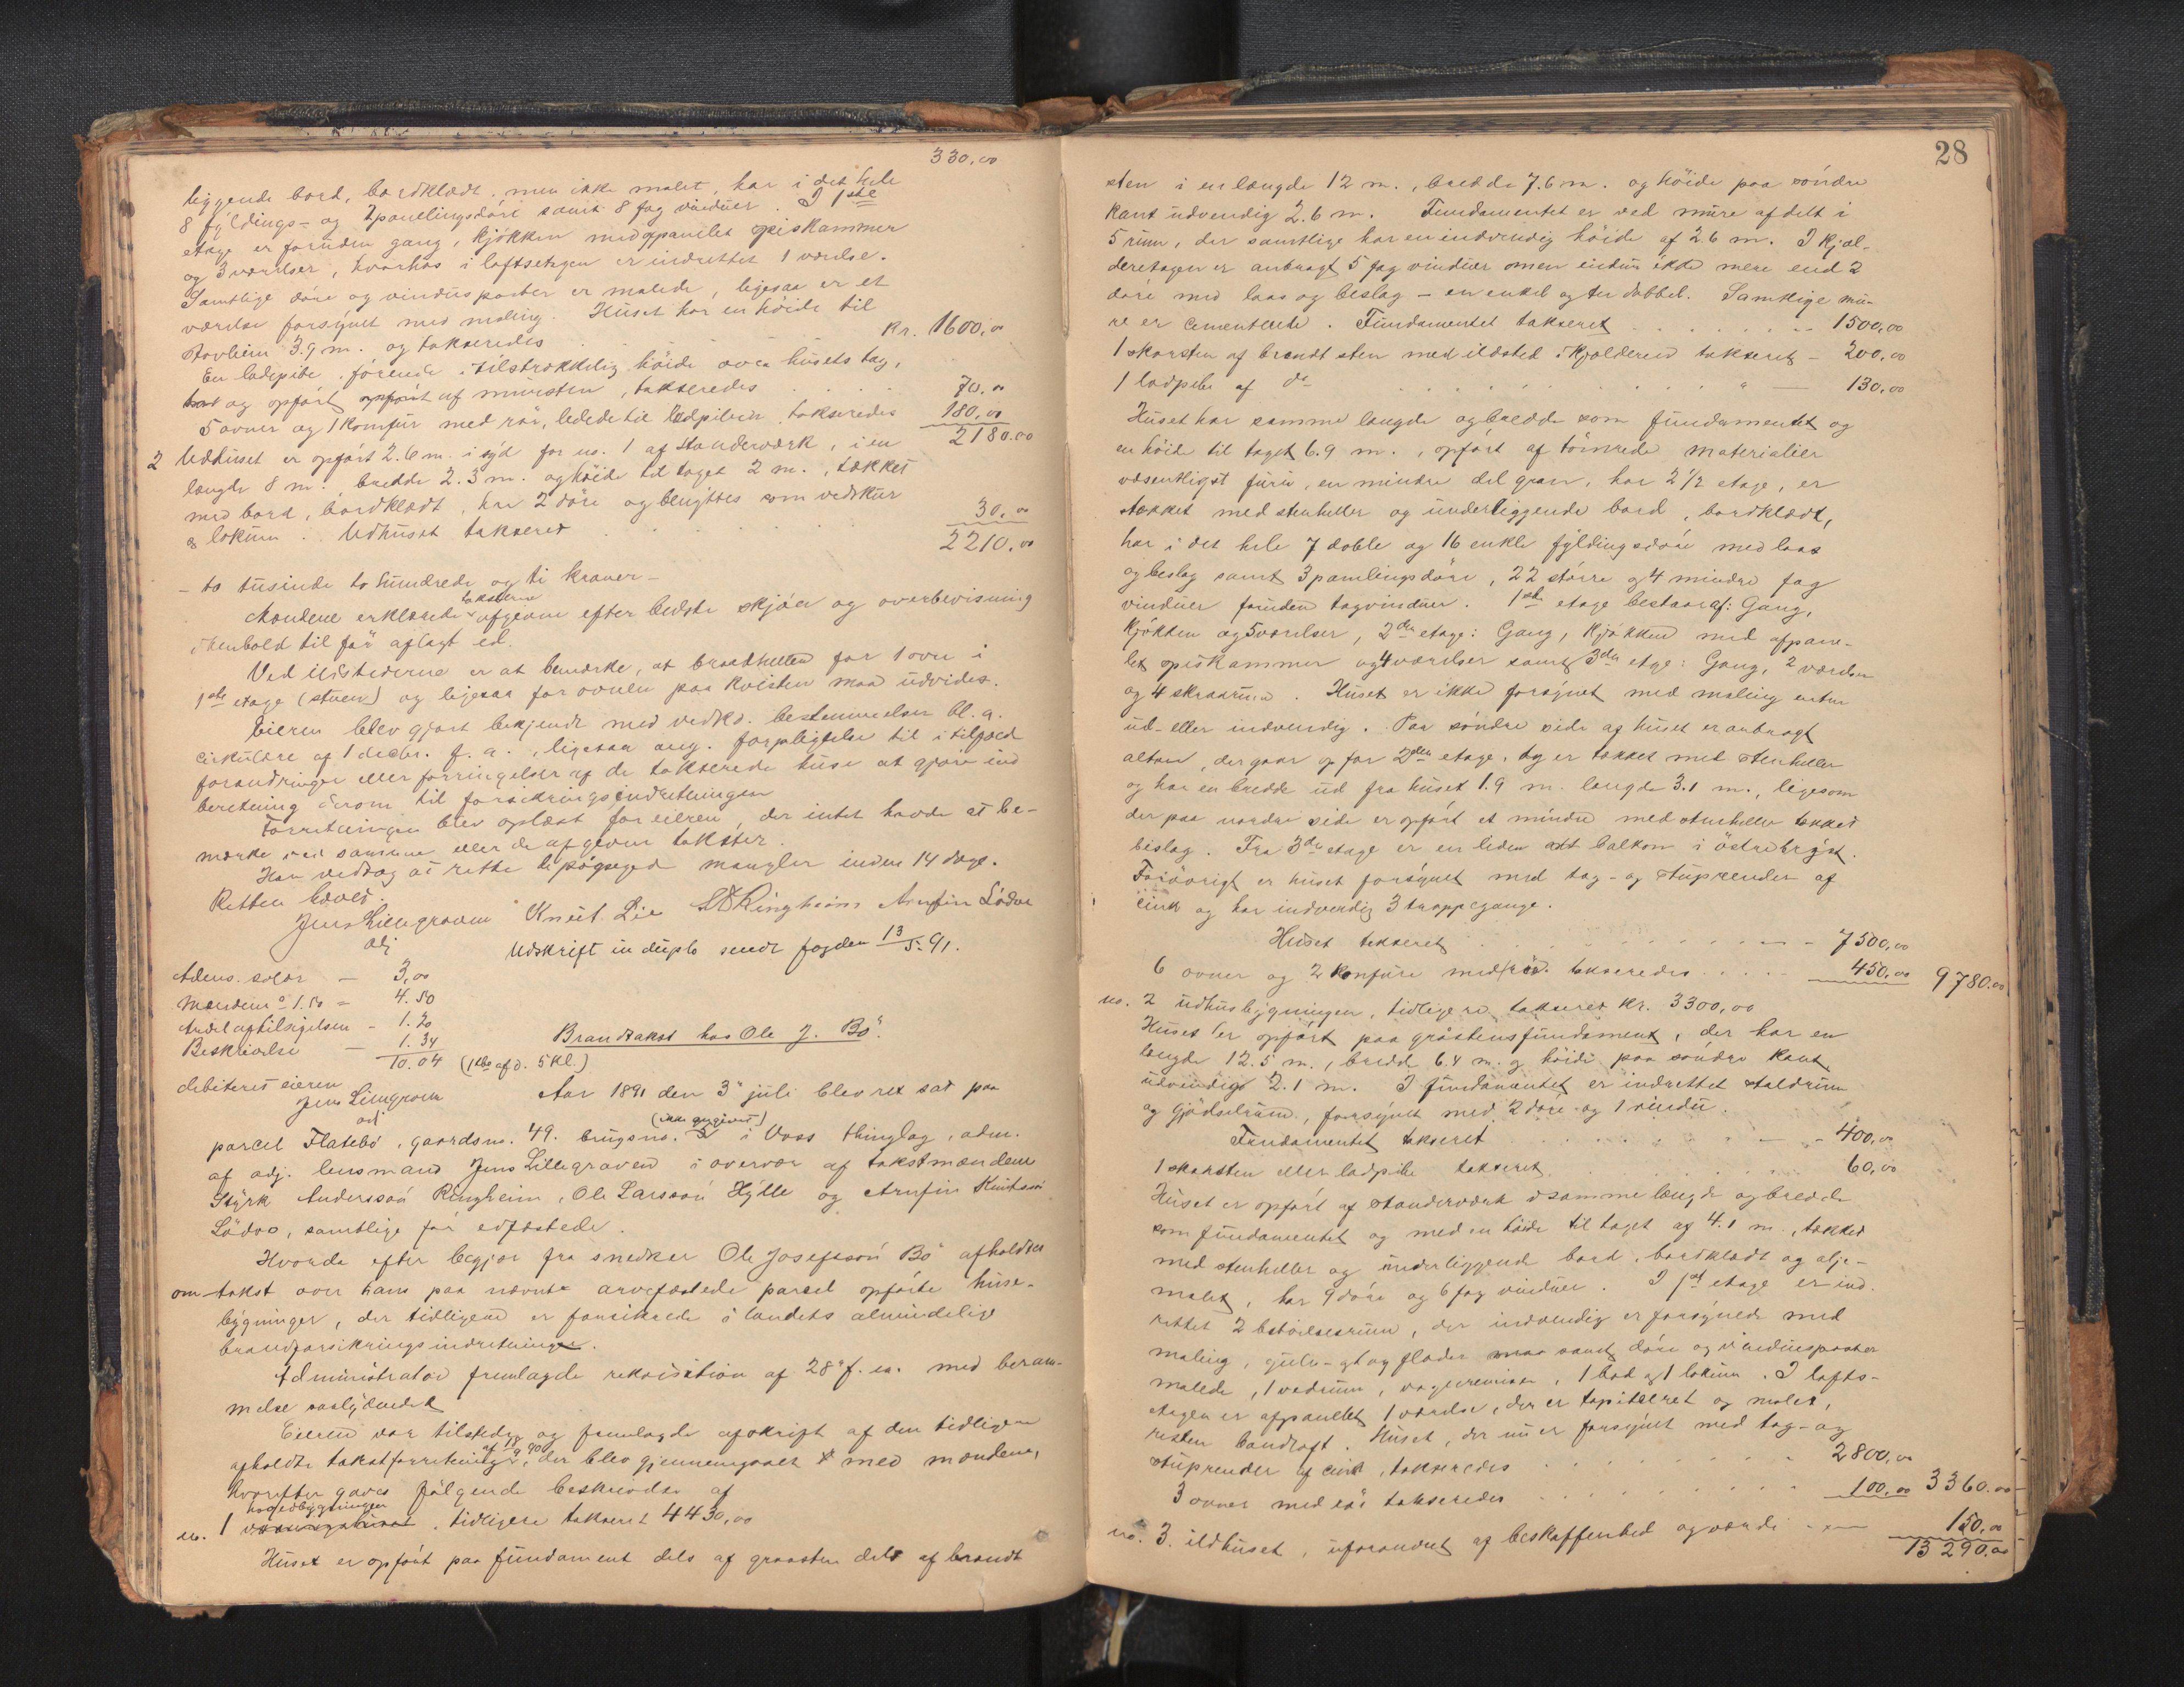 330,00
liggende bord, bordklædt, men ikke malet, har i det hele
8 fyldings- og 2 panelingsdøre samt 8 fag vinduer. I 1ste
etage er foruden gang, kjøkken med afpanelet spiskammer
og 3 værelser, hvorhos i loftsetagen er indrettet 1 værelse.
Samtlige døre og vindusposter er malede, ligesaa er et
værelse forsynet med maling. Huset har en høide til
kr. 1600,00
3.9 m. og takseredes
En ladepibe, førende i tilstrækkelig høide over husets tag,
og opført af mursten, takseredes 70,00
5 ovner og 1 komfur med rør, ledede til ladpiben takseredes 180,00
2180.00
2 Udhuset er opført 2.6 m. i syd for no. 1 af standerværk, i en
længde 8 m., bredde 2.3 m. og høide til taget 2 m., tækket
med bord, bordklædt, har 2 døre og benyttes som vedskur
og lokum. Udhuset takseret 30,00
2210,00
- to tusinde to hundrede og ti kroner -
Mændene erklærede taksterne afgivne efter bedste skjøn og overbevisning
i henhold til før aflagt ed.
Ved ildstederne er at bemærke, at brandhellen for 1 ovn i
1ste etage (stuen) og ligesaa for ovnen paa kvisten maa udvides.
Eieren blev gjort bekjendt med vedkd. bestemmelser bl. a.
cirkulære af 1 decbr. f. a., ligesaa ang. forpligtelse til i tilfæld
forandringer eller forringelser af de takserede huse at gjøre ind
beretning derom til forsikringsindretningen
Forretningen blev oplæst for eieren, der intet havde at be-
mærke ved samme eller de afgivne takster.
Han vedtog at rette de paapegede mangler inden 14 dage.
Retten hævet.
Jens Lillegraven Knut Lie S A Ringheim Arnfin Lødve
adj
Udskrift in duplo sendt fogden 13/5-91.
Adms. salær - 3,00
Mændene à 1.50 - 4.50
Andel af tilsigelsen - 1.20
Beskrivelse - 1.34
10.04 (1ste afd. 5 kl.)
debiteret eieren
Jens Lillegraven
adj
Brandtakst hos Ole J. Bø.
Aar 1891 den 3" juli blev ret sat paa
(ikke opgivet)
parcel Flatebø, gaardsno. 49. brugsno. i Voss thinglag, adm.
af adj. lensmand Jens Lillegraven i overvær af takstmændene
Styrk Andersson Ringheim, Ole Larsson Hylle og Arnfin Knutsson
Lødve, samtlige før edfæstede.
Hvorda efter begjær fra snedker Ole Josefsson Bø afholdtes
om-takst over hans paa nævnte arvefæstede parcel opførte huse-
bygninger, der tidligere er forsikrede i landets almindelige
brandforsikringsindretning.
Administrator fremlagde rekvisition af 28" f. m. med beram-
melse saalydende
Eieren var tilstede og fremlagde afskrift af den tidligere
afholdte takstforretning af 19/9 90, der blev gjennemgaaet med mændene,
hvorefter gaves følgende beskrivelse af
hovedbygningen
no. 1 vaaningshuset, tidligere takseret 4430,00
Huset er opført paa fundament dels af graasten dels af brændt
28
sten i en længde 12 m., bredde 7.6 m. og høide paa søndre
kant udvendig 2.6 m. Fundamentet er ved mure afdelt i
5 rum, der samtlige har en indvendig høide af 2.6 m. I kjæl-
deretagen er anbragt 5 fag vinduer men endnu ikke mere end 2
døre med laas og beslag - en enkel og en dobbel. Samtlige mu-
re er cementerede. Fundamentet takseret 1500,00
1 skorsten af brændt sten med ildsted i kjælderen takseret - 200,00
1 ladpibe af do " - 130,00
Huset har samme længde og bredde som fundamentet og
en høide til taget 6.9 m., opført af tømrede materialier
væsentligst furu, en mindre del gran, har 2 1/2 etage, er
tækket med stenheller og underliggende bord, bordklædt,
har i det hele 7 doble og 16 enkle fyldingsdøre med laas
og beslag samt 3 panelingsdøre, 22 større og 4 mindre fag
vinduer foruden tagvinduer. 1ste etage bestaar af: Gang,
kjøkken og 5 værelser, 2den etage: Gang, kjøkken med afpane-
let spiskammer og 4 værelser samt 3die etage: Gang, 2 værelser
og 4 skraarum. Huset er ikke forsynet med maling enten
ud- eller indvendig. Paa søndre side af huset er anbragt
altan, der gaar op for 2den etage, og er tækket med stenheller
og har en bredde ud fra huset 1.9 m. længde 3.1 m., ligesom
der paa nordre side er opført et mindre med stenheller tækket
beslag. Fra 3die etage er en liden balkon i østre bryst.
Forøvrigt er huset forsynet med tag- og stuprender af
cink og har indvendig 3 trappegange.
Huset takseret - 7500,00
6 ovner og 2 komfure med rør takseredes 450,00 9780.00
no. 2 udhusbygningen, tidligere takseret kr. 3300,00
Huset er opført paa graastensfundament, der har en
længde 12.5 m., bredde 6.4 m. og høide paa søndre kant
udvendigt 2.1 m. I fundamentet er indrettet staldrum
og gjødselrum, forsynet med 2 døre og 1 vindu.
Fundamentet takseret - 400,00
1 skorsten eller ladpibe takseret 60,00
Huset er opført af standerværk i samme længde og bredde
som fundamentet og med en høide til taget af 4.1 m., tækket
med stenheller og underliggende bord, bordklædt og olje-
malet, har 9 døre og 6 fag vinduer. I 1ste etage er ind-
rettet 2 beboelsesrum, der indvendig er forsynede med
maling, samt døre og vindusposter
malede, 1 vedrum, vognremisse, 1 bod og 1 lokum. I lofts-
etagen er afpanellet 1 værelse, der er tapitseret og malet,
resten Landloft. Huset, der nu er forsynet med tag- og
stuprender af cink, takseredes 2800,00
3 ovner med rør takseredes 100,00 3360.00
no. 3. ildhuset, uforandret af beskaffenhed og værdi - 150,00
13 290.00